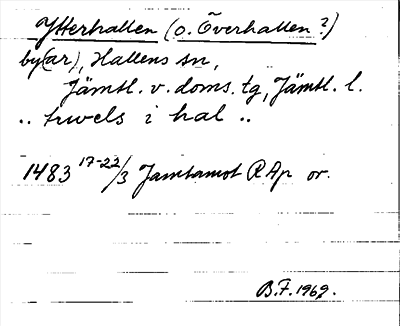 Ytterhallen (o. Överhallen?)
by(ar), Hallens sn,
Jämtl. v. doms. tg, Jämtl. l.
.. trwels i hal ..
1483 17-22/3 Jamtamot RAp or.
B.F. 1969.